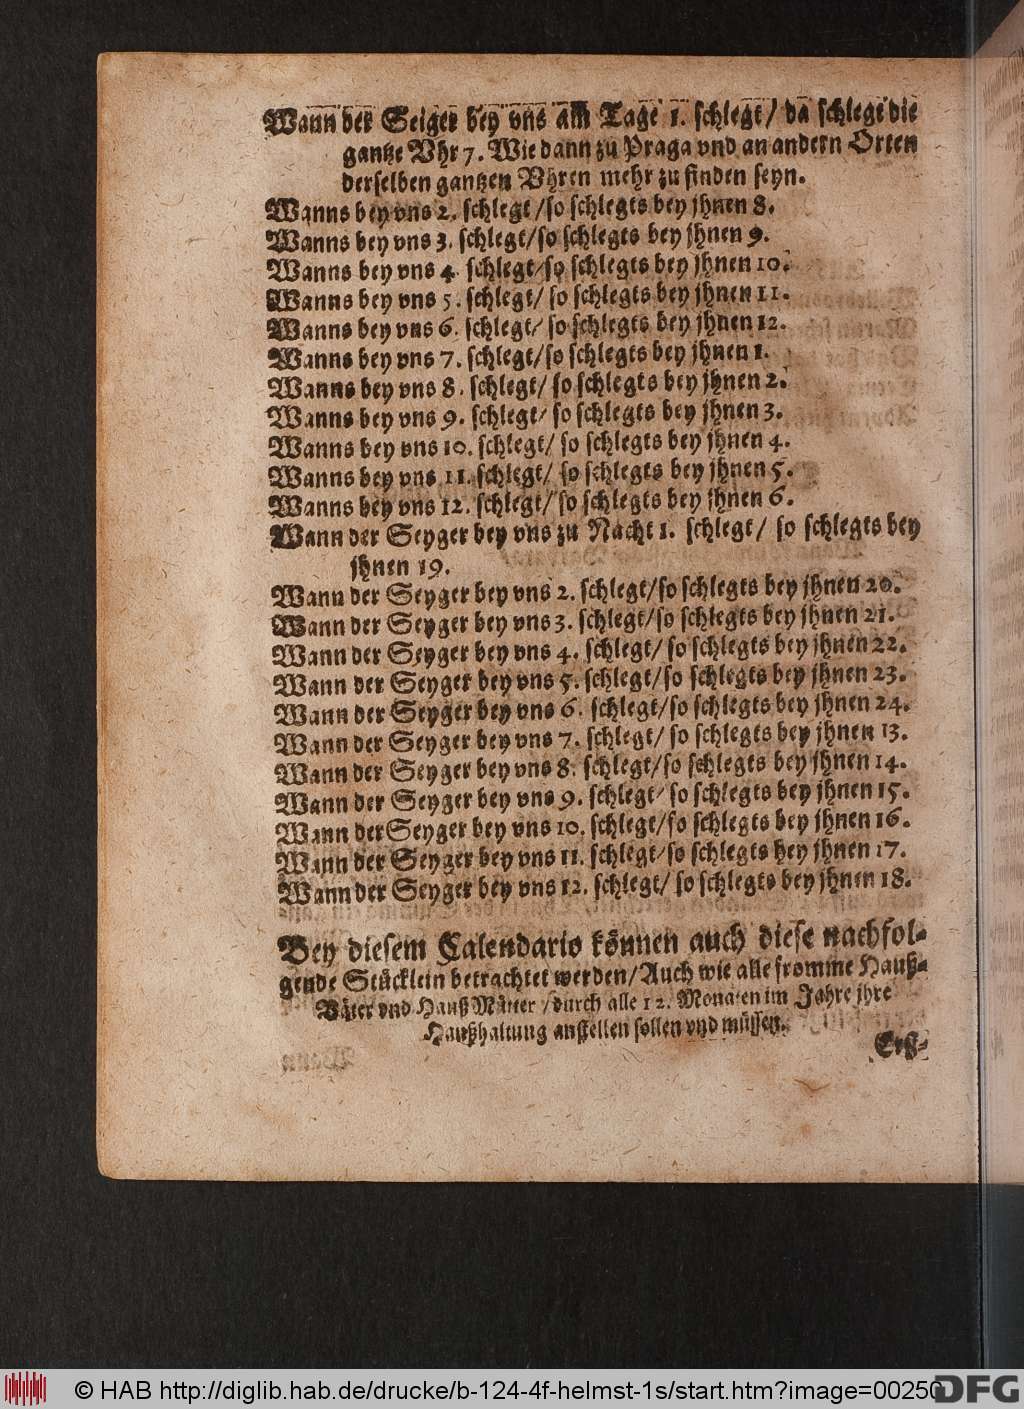 Wann der Seiger bey vns am Tage 1. schlegt / da schlegt die
gantze Vhr 7. Wie dann zu Praga vnd an andern Orten
derselben gantzen Vhren mehr zu finden seyn.
Wanns bey vns 2. schlegt / so schlegts bey jhnen 8.
Wanns bey vns 3. schlegt / so schlegts bey jhnen 9.
Wanns bey vns 4. schlegt / so schlegts bey jhnen 10.
Wanns bey vns 5. schlegt / so schlegts bey jhnen 11.
Wanns bey vns 6. schlegt / so schlegts bey jhnen 12.
Wanns bey vns 7. schlegt / so schlegts bey jhnen 1.
Wanns bey vns 8. schlegt / so schlegts bey jhnen 2.
Wanns bey vns 9. schlegt / so schlegts bey jhnen 3.
Wanns bey vns 10. schlegt / so schlegts bey jhnen 4.
Wanns bey vns 11. schlegt / so schlegts bey jhnen 5.
Wanns bey vns 12. schlegt / so schlegts bey jhnen 6.
Wann der Seyger bey vns zu Nacht 1. schlegt / so schlegts bey
jhnen 19.
Wann der Seyger bey vns 2. schlegt / so schlegts bey jhnen 20.
Wann der Seyger bey vns 3. schlegt / so schlegts bey jhnen 21.
Wann der Seyger bey vns 4. schlegt / so schlegts bey jhnen 22.
Wann der Seyger bey vns 5. schlegt / so schlegts bey jhnen 23.
Wann der Seyger bey vns 6. schlegt / so schlegts bey jhnen 24.
Wann der Seyger bey vns 7. schlegt / so schlegts bey jhnen 13.
Wann der Seyger bey vns 8. schlegt / so schlegts bey jhnen 14.
Wann der Seyger bey vns 9. schlegt / so schlegts bey jhnen 15.
Wann der Seyger bey vns 10. schlegt / so schlegts bey jhnen 16.
Wann der Seyger bey vns 11. schlegt / so schlegts bey jhnen 17.
Wann der Seyger bey vns 12. schlegt / so schlegts bey jhnen 18.
Bey diesem Calendario können auch diese nachfol-
gende Stücklein betrachtet werden / Auch wie alle fromme Hauß-
Väter vnd Hauß Mütter / durch alle 12. Monaten im Jahre jhre
Haußhaltung anstellen sollen vnd müssen.
Erst-
© HAB http://diglib.hab.de/drucke/b-124-4f-helmst-1s/start.htm?image=00250
DFG